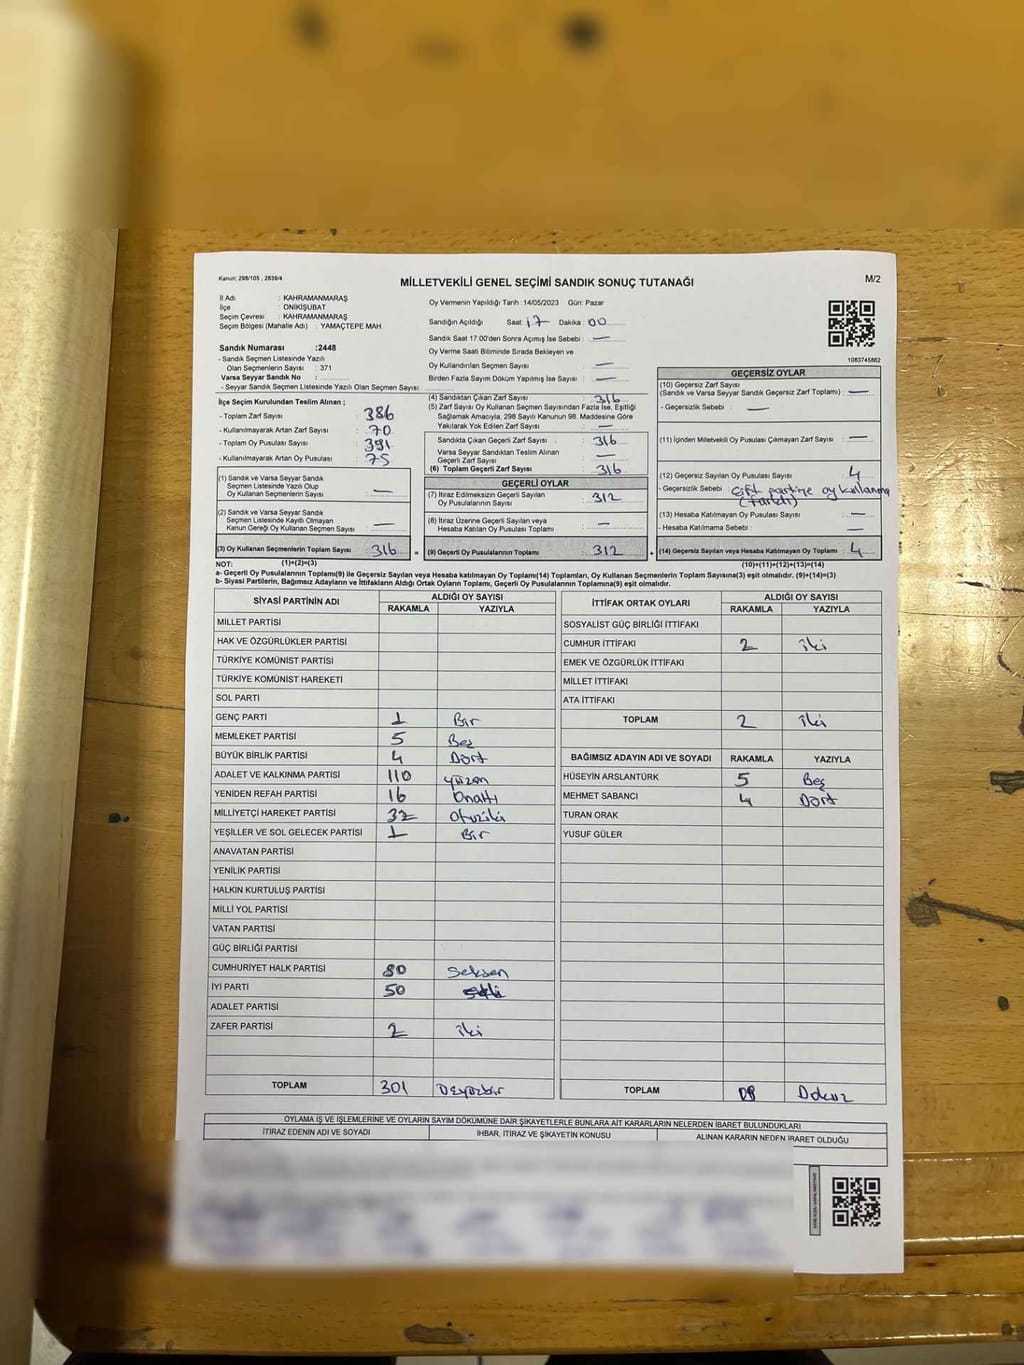 Kanun: 298/105 , 2839/4
MİLLETVEKİLİ GENEL SEÇİMİ SANDIK SONUÇ TUTANAĞI
M/2
İl Adı : KAHRAMANMARAŞ
İlçe : ONİKİŞUBAT
Seçim Çevresi : KAHRAMANMARAŞ
Seçim Bölgesi (Mahalle Adı) : YAMAÇTEPE MAH.
Sandık Numarası :2448
- Sandık Seçmen Listesinde Yazılı
Olan Seçmenlerin Sayısı : 371
Varsa Seyyar Sandık No :
- Seyyar Sandık Seçmen Listesinde Yazılı Olan Seçmen Sayısı:
Oy Vermenin Yapıldığı Tarih : 14/05/2023 Gün: Pazar
Sandığın Açıldığı Saat 17 Dakika : 00
Sandık Saat 17.00'den Sonra Açmış İse Sebebi : —
Oy Verme Saati Bitiminde Sırada Bekleyen ve
Oy Kullandırılan Seçmen Sayısı : —
Birden Fazla Sayım Döküm Yapılmış İse Sayısı : —
1083745862
İlçe Seçim Kurulundan Teslim Alınan ;
- Toplam Zarf Sayısı : 386
- Kullanılmayarak Artan Zarf Sayısı : 70
- Toplam Oy Pusulası Sayısı : 391
- Kullanılmayarak Artan Oy Pusulası : 75
(1) Sandık ve Varsa Seyyar Sandık
Seçmen Listesinde Yazılı Olup
Oy Kullanan Seçmenlerin Sayısı : —
(2) Sandık ve Varsa Seyyar Sandık
Seçmen Listesinde Kayıtlı Olmayan
Kanun Gereği Oy Kullanan Seçmen Sayısı : —
(3) Oy Kullanan Seçmenlerin Toplam Sayısı : 316
(4) Sandıktan Çıkan Zarf Sayısı : 316
(5) Zarf Sayısı Oy Kullanan Seçmen Sayısından Fazla İse, Eşitliği
Sağlamak Amacıyla, 298 Sayılı Kanunun 98. Maddesine Göre
Yakılarak Yok Edilen Zarf Sayısı : —
Sandıkta Çıkan Geçerli Zarf Sayısı : 316
Varsa Seyyar Sandıktan Teslim Alınan
Geçerli Zarf Sayısı : —
(6) Toplam Geçerli Zarf Sayısı : 316
GEÇERLİ OYLAR
(7) İtiraz Edilmeksizin Geçerli Sayılan
Oy Pusulalarının Sayısı : 312
(8) İtiraz Üzerine Geçerli Sayılan veya
Hesaba Katılan Oy Pusulası Toplamı : —
= (9) Geçerli Oy Pusulalarının Toplamı : 312
GEÇERSİZ OYLAR
(10) Geçersiz Zarf Sayısı
(Sandık ve Varsa Seyyar Sandık Geçersiz Zarf Toplamı) : —
- Geçersizlik Sebebi : —
(11) İçinden Milletvekili Oy Pusulası Çıkmayan Zarf Sayısı : —
(12) Geçersiz Sayılan Oy Pusulası Sayısı : 4
- Geçersizlik Sebebi : çift partiye oy kullanma
(farklı)
(13) Hesaba Katılmayan Oy Pusulası Sayısı : —
- Hesaba Katılmama Sebebi : —
+ (14) Geçersiz Sayılan veya Hesaba Katılmayan Oy Toplamı : 4
NOT: (1)+(2)=(3) (10)+(11)+(12)+(13)=(14)
a- Geçerli Oy Pusulalarının Toplamı(9) ile Geçersiz Sayılan veya Hesaba katılmayan Oy Toplam(14) Toplamları, Oy Kullanan Seçmenlerin Toplam Sayısına(3) eşit olmalıdır. (9)+(14)=(3)
b- Siyasi Partilerin, Bağımsız Adayların ve İttifakların Aldığı Ortak Oyların Toplamı, Geçerli Oy Pusulalarının Toplamına(9) eşit olmalıdır.
SİYASİ PARTİNİN ADI ALDIĞI OY SAYISI
RAKAMLA YAZIYLA
MİLLET PARTİSİ
HAK VE ÖZGÜRLÜKLER PARTİSİ
TÜRKİYE KOMÜNİST PARTİSİ
TÜRKİYE KOMÜNİST HAREKETİ
SOL PARTİ
GENÇ PARTİ 1 Bir
MEMLEKET PARTİSİ 5 Beş
BÜYÜK BİRLİK PARTİSİ 4 Dört
ADALET VE KALKINMA PARTİSİ 110 yüzon
YENİDEN REFAH PARTİSİ 16 Onaltı
MİLLİYETÇİ HAREKET PARTİSİ 32 Otuziki
YEŞİLLER VE SOL GELECEK PARTİSİ 1 Bir
ANAVATAN PARTİSİ
YENİLİK PARTİSİ
HALKIN KURTULUŞ PARTİSİ
MİLLİ YOL PARTİSİ
VATAN PARTİSİ
GÜÇ BİRLİĞİ PARTİSİ
CUMHURİYET HALK PARTİSİ 80 Seksen
İYİ PARTİ 50
ADALET PARTİSİ
ZAFER PARTİSİ 2 iki
TOPLAM 301 Üçyüzbir
İTTİFAK ORTAK OYLARI ALDIĞI OY SAYISI
RAKAMLA YAZIYLA
SOSYALİST GÜÇ BİRLİĞİ İTTİFAKI
CUMHUR İTTİFAKI 2 iki
EMEK VE ÖZGÜRLÜK İTTİFAKI
MİLLET İTTİFAKI
ATA İTTİFAKI
TOPLAM 2 iki
BAĞIMSIZ ADAYIN ADI VE SOYADI RAKAMLA YAZIYLA
HÜSEYİN ARSLANTÜRK 5 Beş
MEHMET SABANCI 4 Dört
TURAN ORAK
YUSUF GÜLER
TOPLAM 09 Dokuz
OYLAMA İŞ VE İŞLEMLERİNE VE OYLARIN SAYIM DÖKÜMÜNE DAİR ŞİKAYETLERLE BUNLARA AİT KARARLARIN NELERDEN İBARET BULUNDUKLARI
İTİRAZ EDENİN ADI VE SOYADI İHBAR, İTİRAZ VE ŞİKAYETİN KONUSU ALINAN KARARIN NEDEN İBARET OLDUĞU